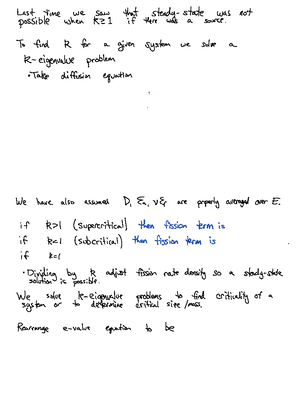 Last time we saw that steady-state was not
possible when k≥1 if there was a source.
To find k for a given system we solve a
k-eigenvalue problem
• Take diffusion equation
We have also assumed D, Σa, νΣf are properly averaged over E.
if k>1 (supercritical) then fission term is
if k<1 (subcritical) then fission term is
if k=1
• Dividing by k adjust fission rate density so a steady-state
solution is possible.
We solve k-eigenvalue problems to find criticality of a
system or to determine critical size/mass.
Rearrange e-value equation to be